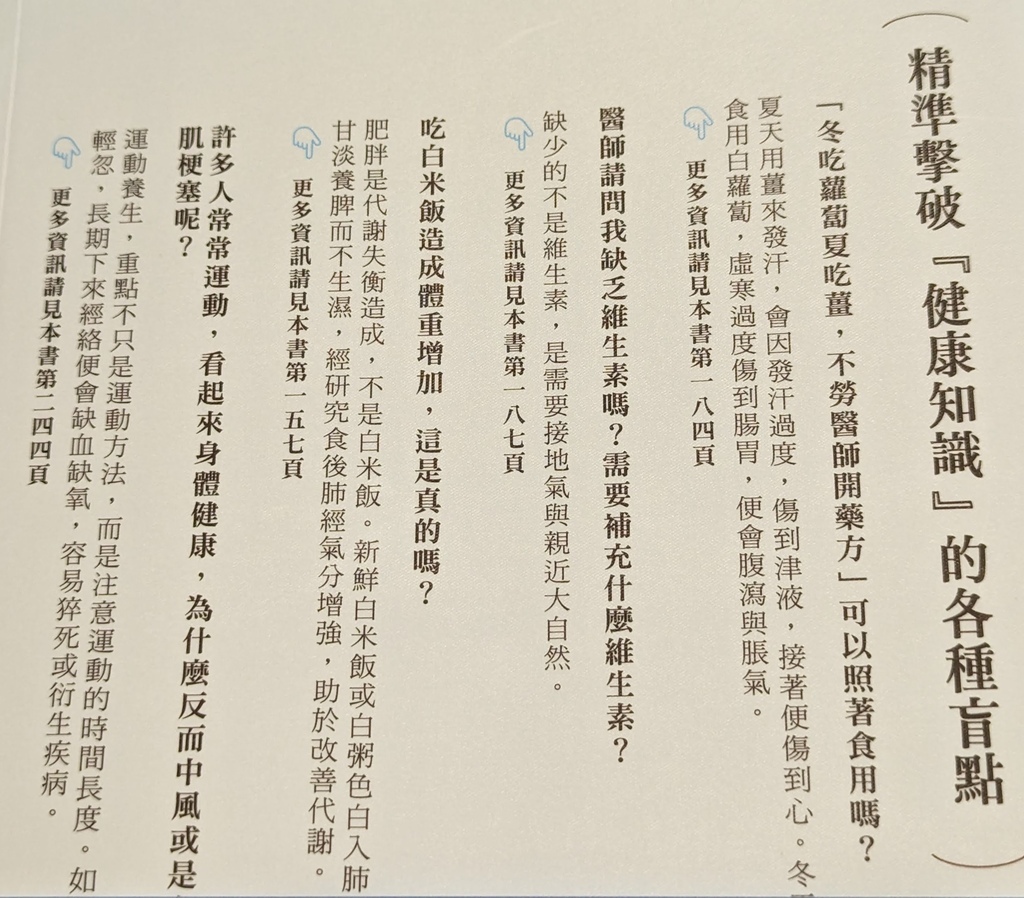 精準擊破『健康知識』的各種盲點
「冬吃蘿蔔夏吃薑，不勞醫師開藥方」可以照著食用嗎？
夏天用薑來發汗，會因發汗過度，傷到津液，接著便傷到心。冬
食用白蘿蔔，虛寒過度傷到腸胃，便會腹瀉與脹氣。
更多資訊請見本書第一八四頁
醫師請問我缺乏維生素嗎？需要補充什麼維生素？
缺少的不是維生素，是需要接地氣與親近大自然。
更多資訊請見本書第一八七頁
吃白米飯造成體重增加，這是真的嗎？
肥胖是代謝失衡造成，不是白米飯。新鮮白米飯或白粥色白入肺
甘淡養脾而不生濕，經研究食後肺經氣分增強，助於改善代謝。
更多資訊請見本書第一五七頁
許多人常常運動，看起來身體健康，為什麼反而中風或是
肌梗塞呢？
運動養生，重點不只是運動方法，而是注意運動的時間長度。如
輕忽，長期下來經絡便會缺血缺氧，容易猝死或衍生疾病。
更多資訊請見本書第二四四頁